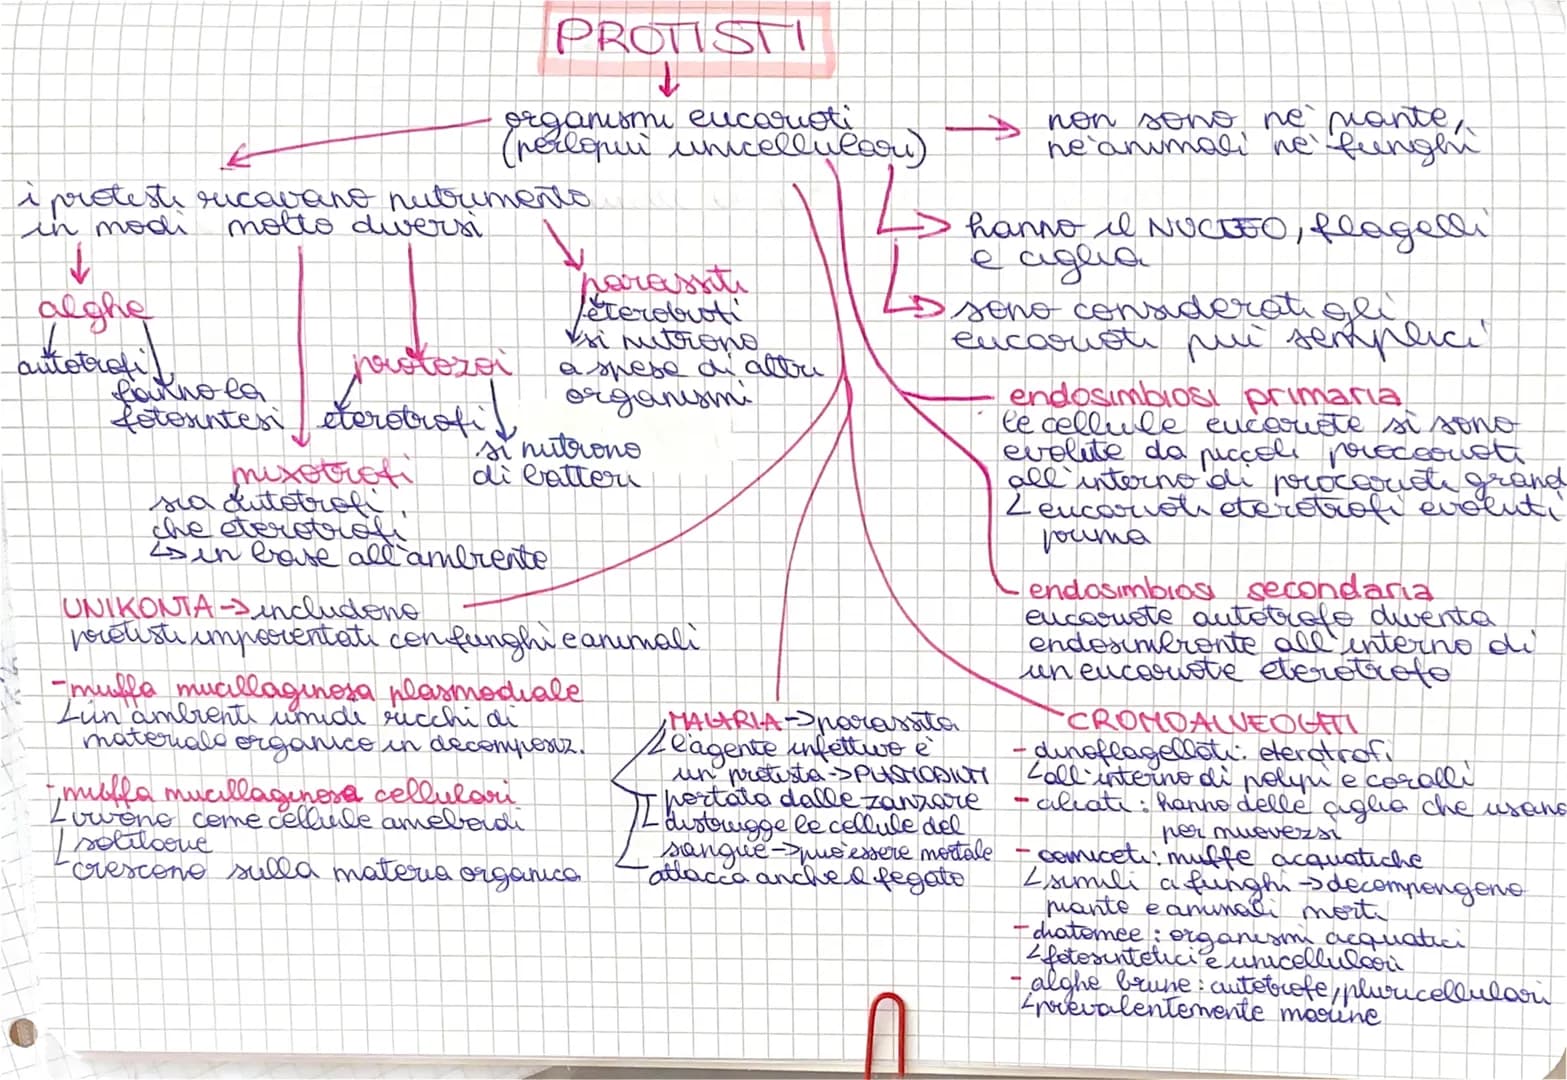 PROTISTI
organismi eucarioti
(perlopiù unicellulari)
non sono nè piante,
nè animali nè funghi
i protisti ricavano nutrimento
in modi molto diversi
hanno il NUCLEO, flagelli
e ciglia
sono considerati gli
eucarioti più semplici
alghe
autotrofi
fanno la
fotosintesi
mixotrofi
sia autotrofi
che eterotrofi
in base all'ambiente
protozoi
eterotrofi
si nutrono
di batteri
parassiti
eterotroti
si nutrono
a spese di altri
organismi
endosimbiosi primaria
le cellule eucariote si sono
evolute da piccoli procarioti
all'interno di procarioti grandi
eucarioti eterotrofi evoluti
prima
endosimbiosi secondaria
eucariote autotrofo diventa
endosimbionte all'interno di
un eucariote eterotrofo
UNIKONTA → includono
protisti imparentati con funghi e animali
- muffa mucillaginosa plasmodiale
in ambienti umidi ricchi di
materiale organico in decomposiz.
- muffa mucillaginosa cellulari
vivono come cellule ameboidi
solitarie
crescono sulla materia organica
MALARIA → parassita
l'agente infettivo è
un protista → PLASMODIUM
portata dalle zanzare
distrugge le cellule del
sangue → può essere mortale
attacca anche il fegato
CROMOALVEOLATI
- dinoflagellati: eterotrofi
all'interno di polipi e coralli
- ciliati: hanno delle ciglia che usano
per muoversi
- oomiceti: muffe acquatiche
simili a funghi → decompongono
piante e animali morti
- diatomee: organismi acquatici
fotosintetici e unicellulari
- alghe brune: autotrofe, pluricellulari
prevalentemente marine